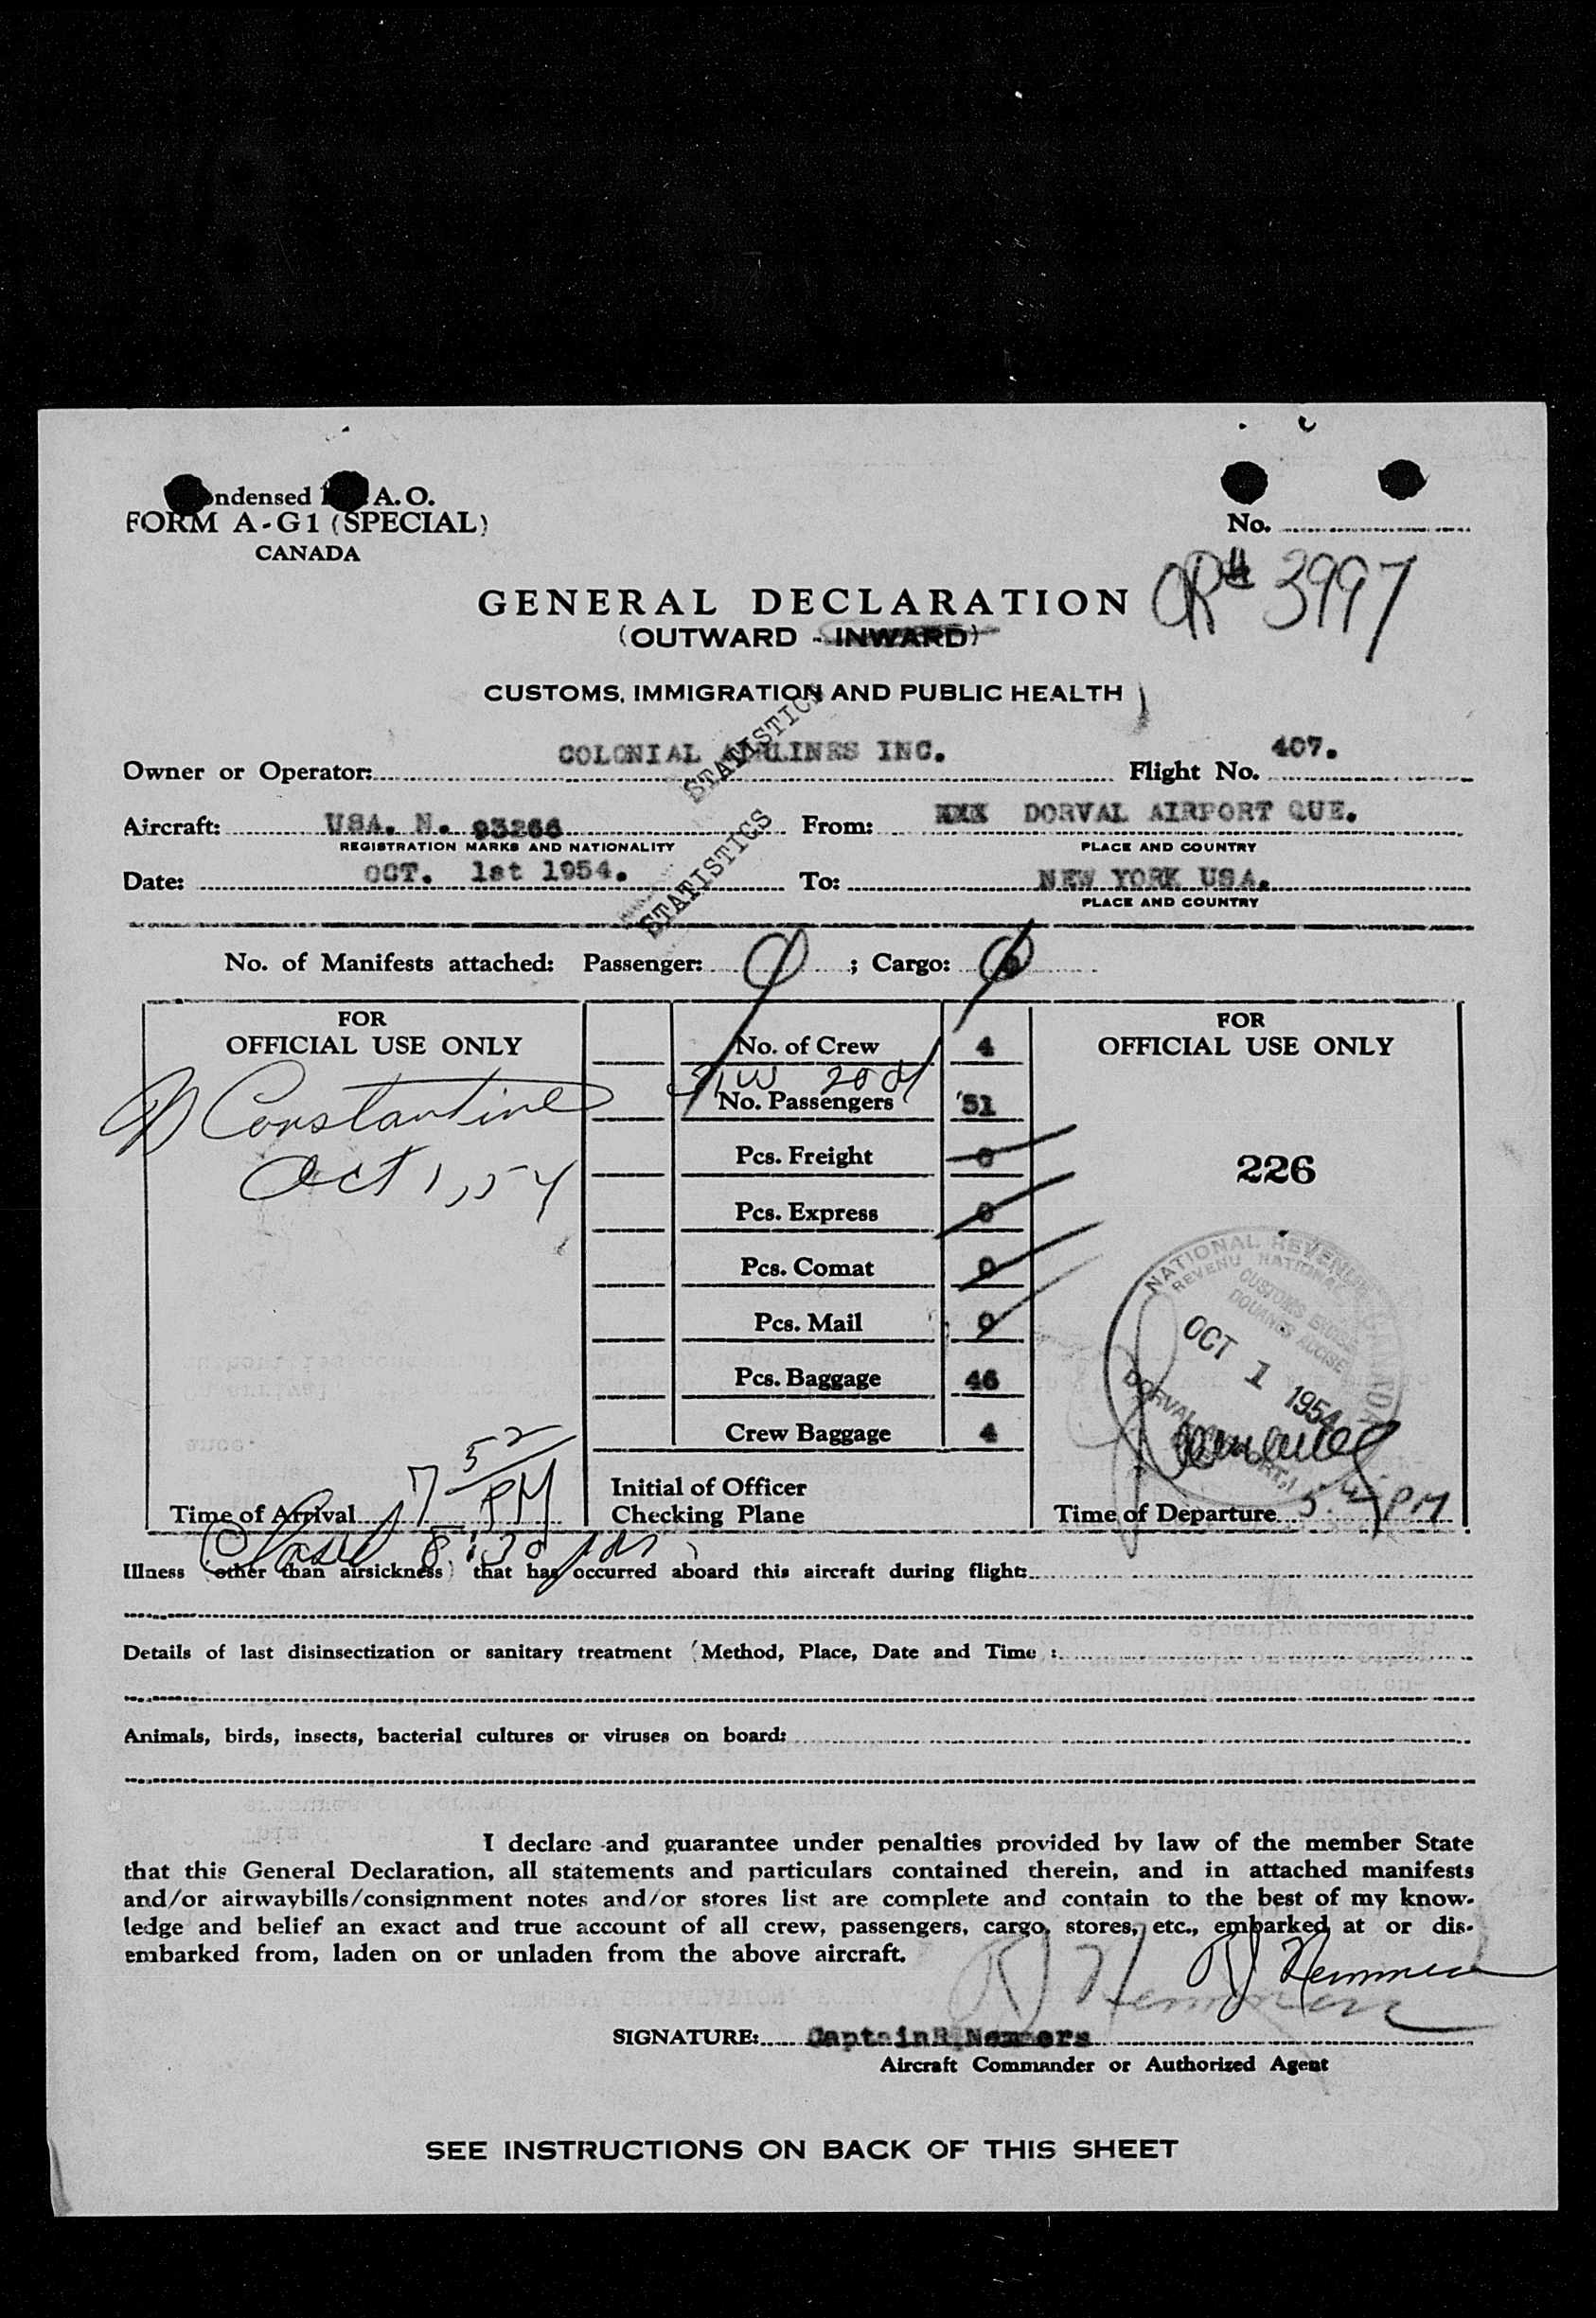 ondensed A.O.
FORM A-G1 (SPECIAL)
CANADA
No.
3997
GENERAL DECLARATION
(OUTWARD - INWARD)
CUSTOMS, IMMIGRATION AND PUBLIC HEALTH
STATISTICS
Owner or Operator: COLONIAL AIRLINES INC. Flight No. 407.
Aircraft: USA. N. 93266 From: XXX DORVAL AIRPORT QUE.
REGISTRATION MARKS AND NATIONALITY PLACE AND COUNTRY
STATISTICS
Date: OCT. 1st 1954. To: NEW YORK USA.
PLACE AND COUNTRY
No. of Manifests attached: Passenger: 0 ; Cargo: 0
FOR
OFFICIAL USE ONLY
Constantine
Oct 1, 54
Time of Arrival 7 52 PM
No. of Crew 4
No. Passengers 51
Pcs. Freight 0
Pcs. Express 0
Pcs. Comat 0
Pcs. Mail 0
Pcs. Baggage 46
Crew Baggage 4
Initial of Officer
Checking Plane
FOR
OFFICIAL USE ONLY
226
NATIONAL REVENUE CANADA
REVENU NATIONAL
CUSTOMS EXCISE
DOUANES ACCISE
OCT 1 1954
DORVAL
Time of Departure PM
8:30 pm
Illness (other than airsickness) that has occurred aboard this aircraft during flight:
Details of last disinsectization or sanitary treatment (Method, Place, Date and Time :
Animals, birds, insects, bacterial cultures or viruses on board:
I declare and guarantee under penalties provided by law of the member State
that this General Declaration, all statements and particulars contained therein, and in attached manifests
and/or airwaybills/consignment notes and/or stores list are complete and contain to the best of my know-
ledge and belief an exact and true account of all crew, passengers, cargo, stores, etc., embarked at or dis-
embarked from, laden on or unladen from the above aircraft.
SIGNATURE: Captain R Nemmers
Aircraft Commander or Authorized Agent
SEE INSTRUCTIONS ON BACK OF THIS SHEET